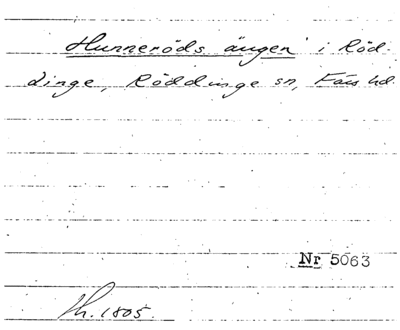 Hunneröds ängen i Röd-
dinge, Röddinge sn, Färs hd.
Nr 5063
Th. 1805.